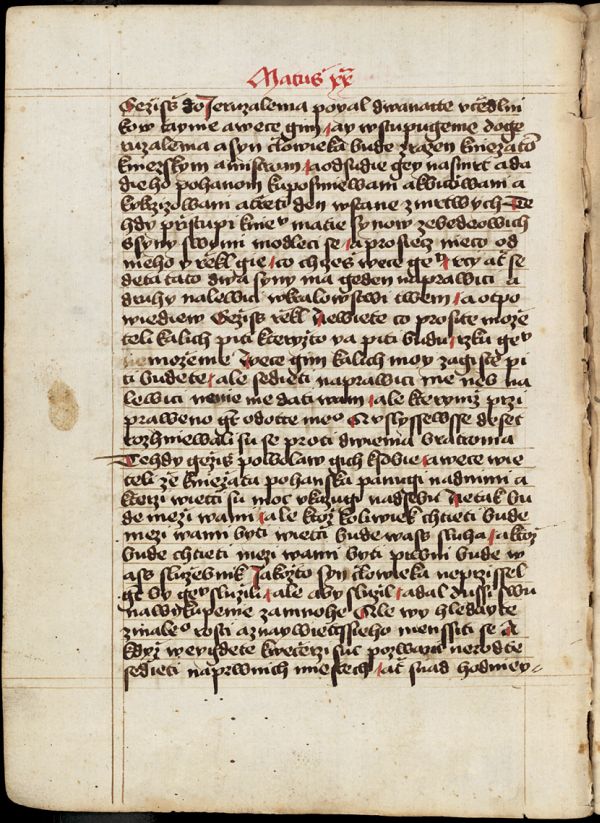 Matus xx
Gezijss do Jeruzalema poyal dwanatte vczedlni
kow taynie a wece gim / ay wstupugeme do ge
ruzalema a syn czlowieka bude zrazen kniezatom
kniezskym a mistrom / a odsudie gey na smrt a da
die ho pohanom ku posmiewani a k bicziowani a
k krzizowani a trzeti den wstane z mrtwych Te
hdy przistupi k niemu matie synow zebedeowich
s syny swymi modleci se / a prosieci nieco od
nieho y rzekl gie / co chczes wece gemu / rcy at se
deta tato dwa syny ma geden na prawici a
druhy na lewici w kralowstwi twem / a otpo
wiediew Gezijss rzekl Newiete co prosite moze
teli kalich piti kteryzto ya piti budu / rzku gemu
mozeme / wece gim kalich moy zagiste pi
ti budete / ale sedieti na prawici me neb na
lewici nenie me dati wam / ale kterymz przi
praweno gest od otce meho A vslyssewsse deset
rozhniewali su se proti dwiema bratroma
Tehdy gezijs powolaw gich k sobie / a wece wie
teli ze kniezata pohanska panugi nad nimi a
kterzi wietci su moc vkazugi nad sebu Ne tak bu
de mezi wami / ale ktoz koliwiek chtieti bude
mezi wami byti wietci bude wass sluha / a ktoz
bude chtieti mezi wami byti prwni bude w
ass sluzebnik Jakozto syn czlowieka neprzissel
gest by gemu sluzili / ale aby sluzil / a dal dussi swu
na wykupenie za mnohe Ale wy hledayte
z maleho rosti a z naywietcssieho menssiti se A
kdyz weygdete k weczerzi suc pozwani nerodte
sedieti na prwnich miestech / at snad hodniey